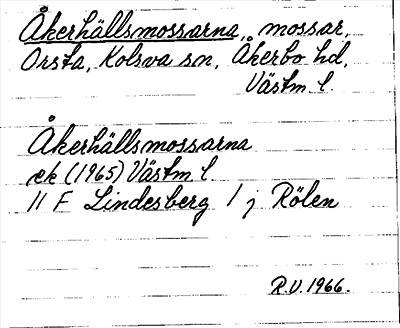 Åkerhällsmossarna, mossar,
Orsta, Kolsva sn, Åkerbo hd,
Västm l.
Åkerhällsmossarna
ek (1965) Västm l.
11 F Lindesberg 1 j Rölen
R.V. 1966.